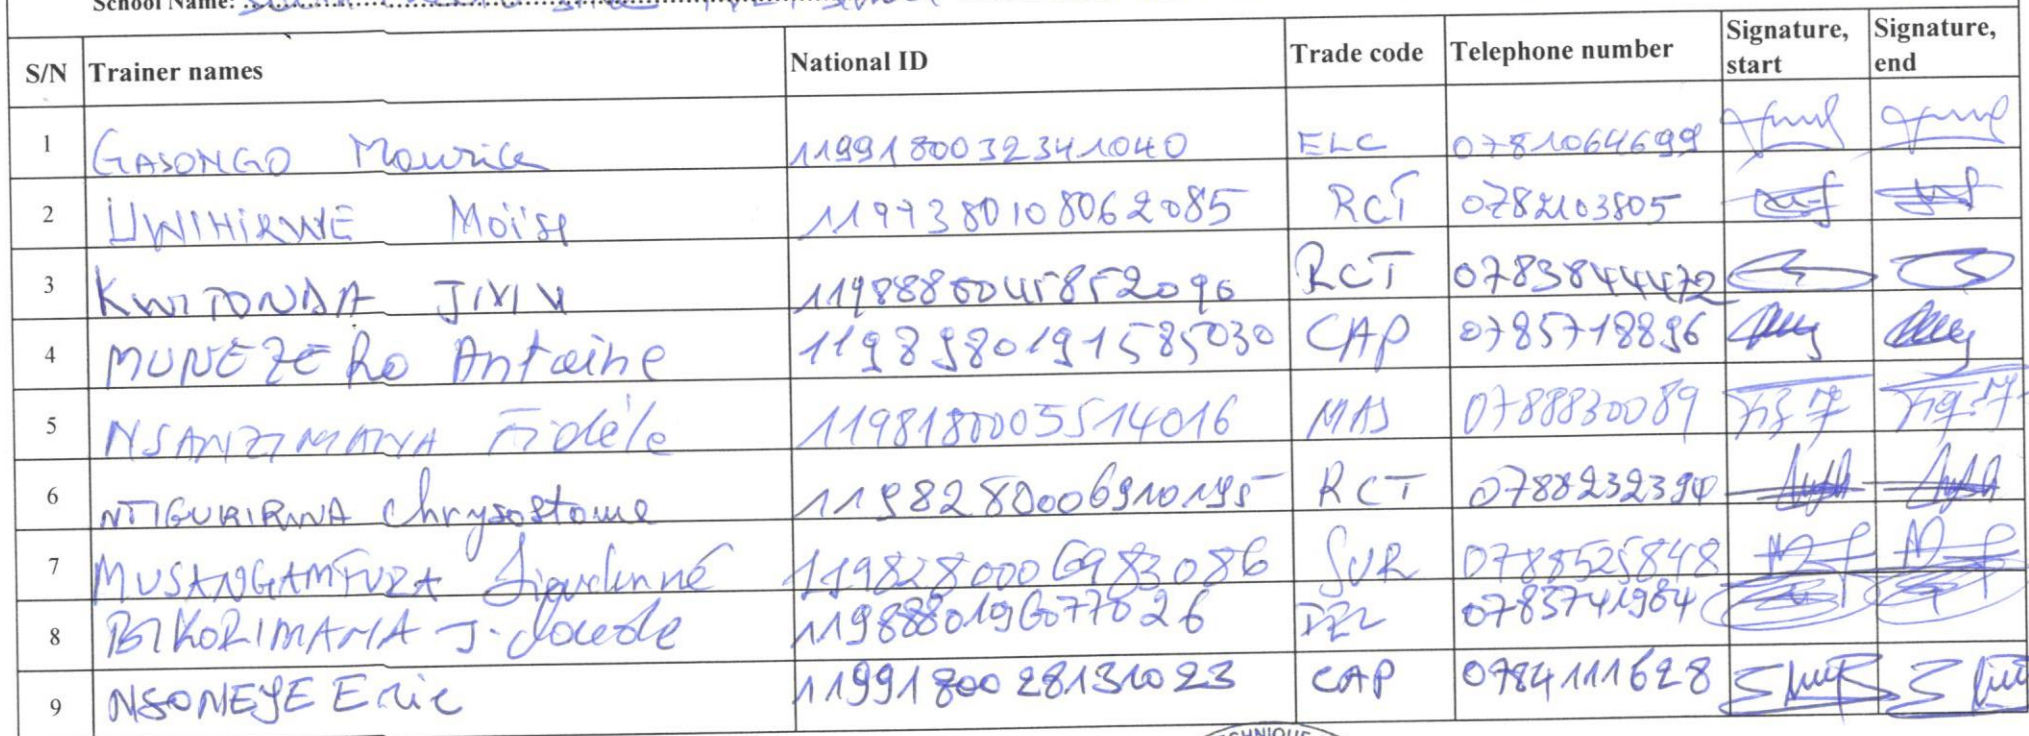 School Name:
S/N Trainer names National ID Trade code Telephone number Signature, start Signature, end
1 GASONGO Maurice 1199180032341040 ELC 0781064699
2 UWIHIRWE Moïse 1197380108062085 RCT 0782103805
3 KWITONDA 1198880045852096 RCT 0783844472
4 MUNEZERO Antoine 1198980191585030 CAP 0785718896
5 NSANZIMANA Fidèle 1198180005514016 MAS 0788830089
6 NTIGURIRWA Chrysostome 1198280006910195 RCT 0788232390
7 MUSANGAMFURA 1198280006983086 SUR 0788525848
8 BIKORIMANA J. 0783741984
9 NSONEYE Eric 1199180028131023 CAP 0784111628
TECHNIQUE